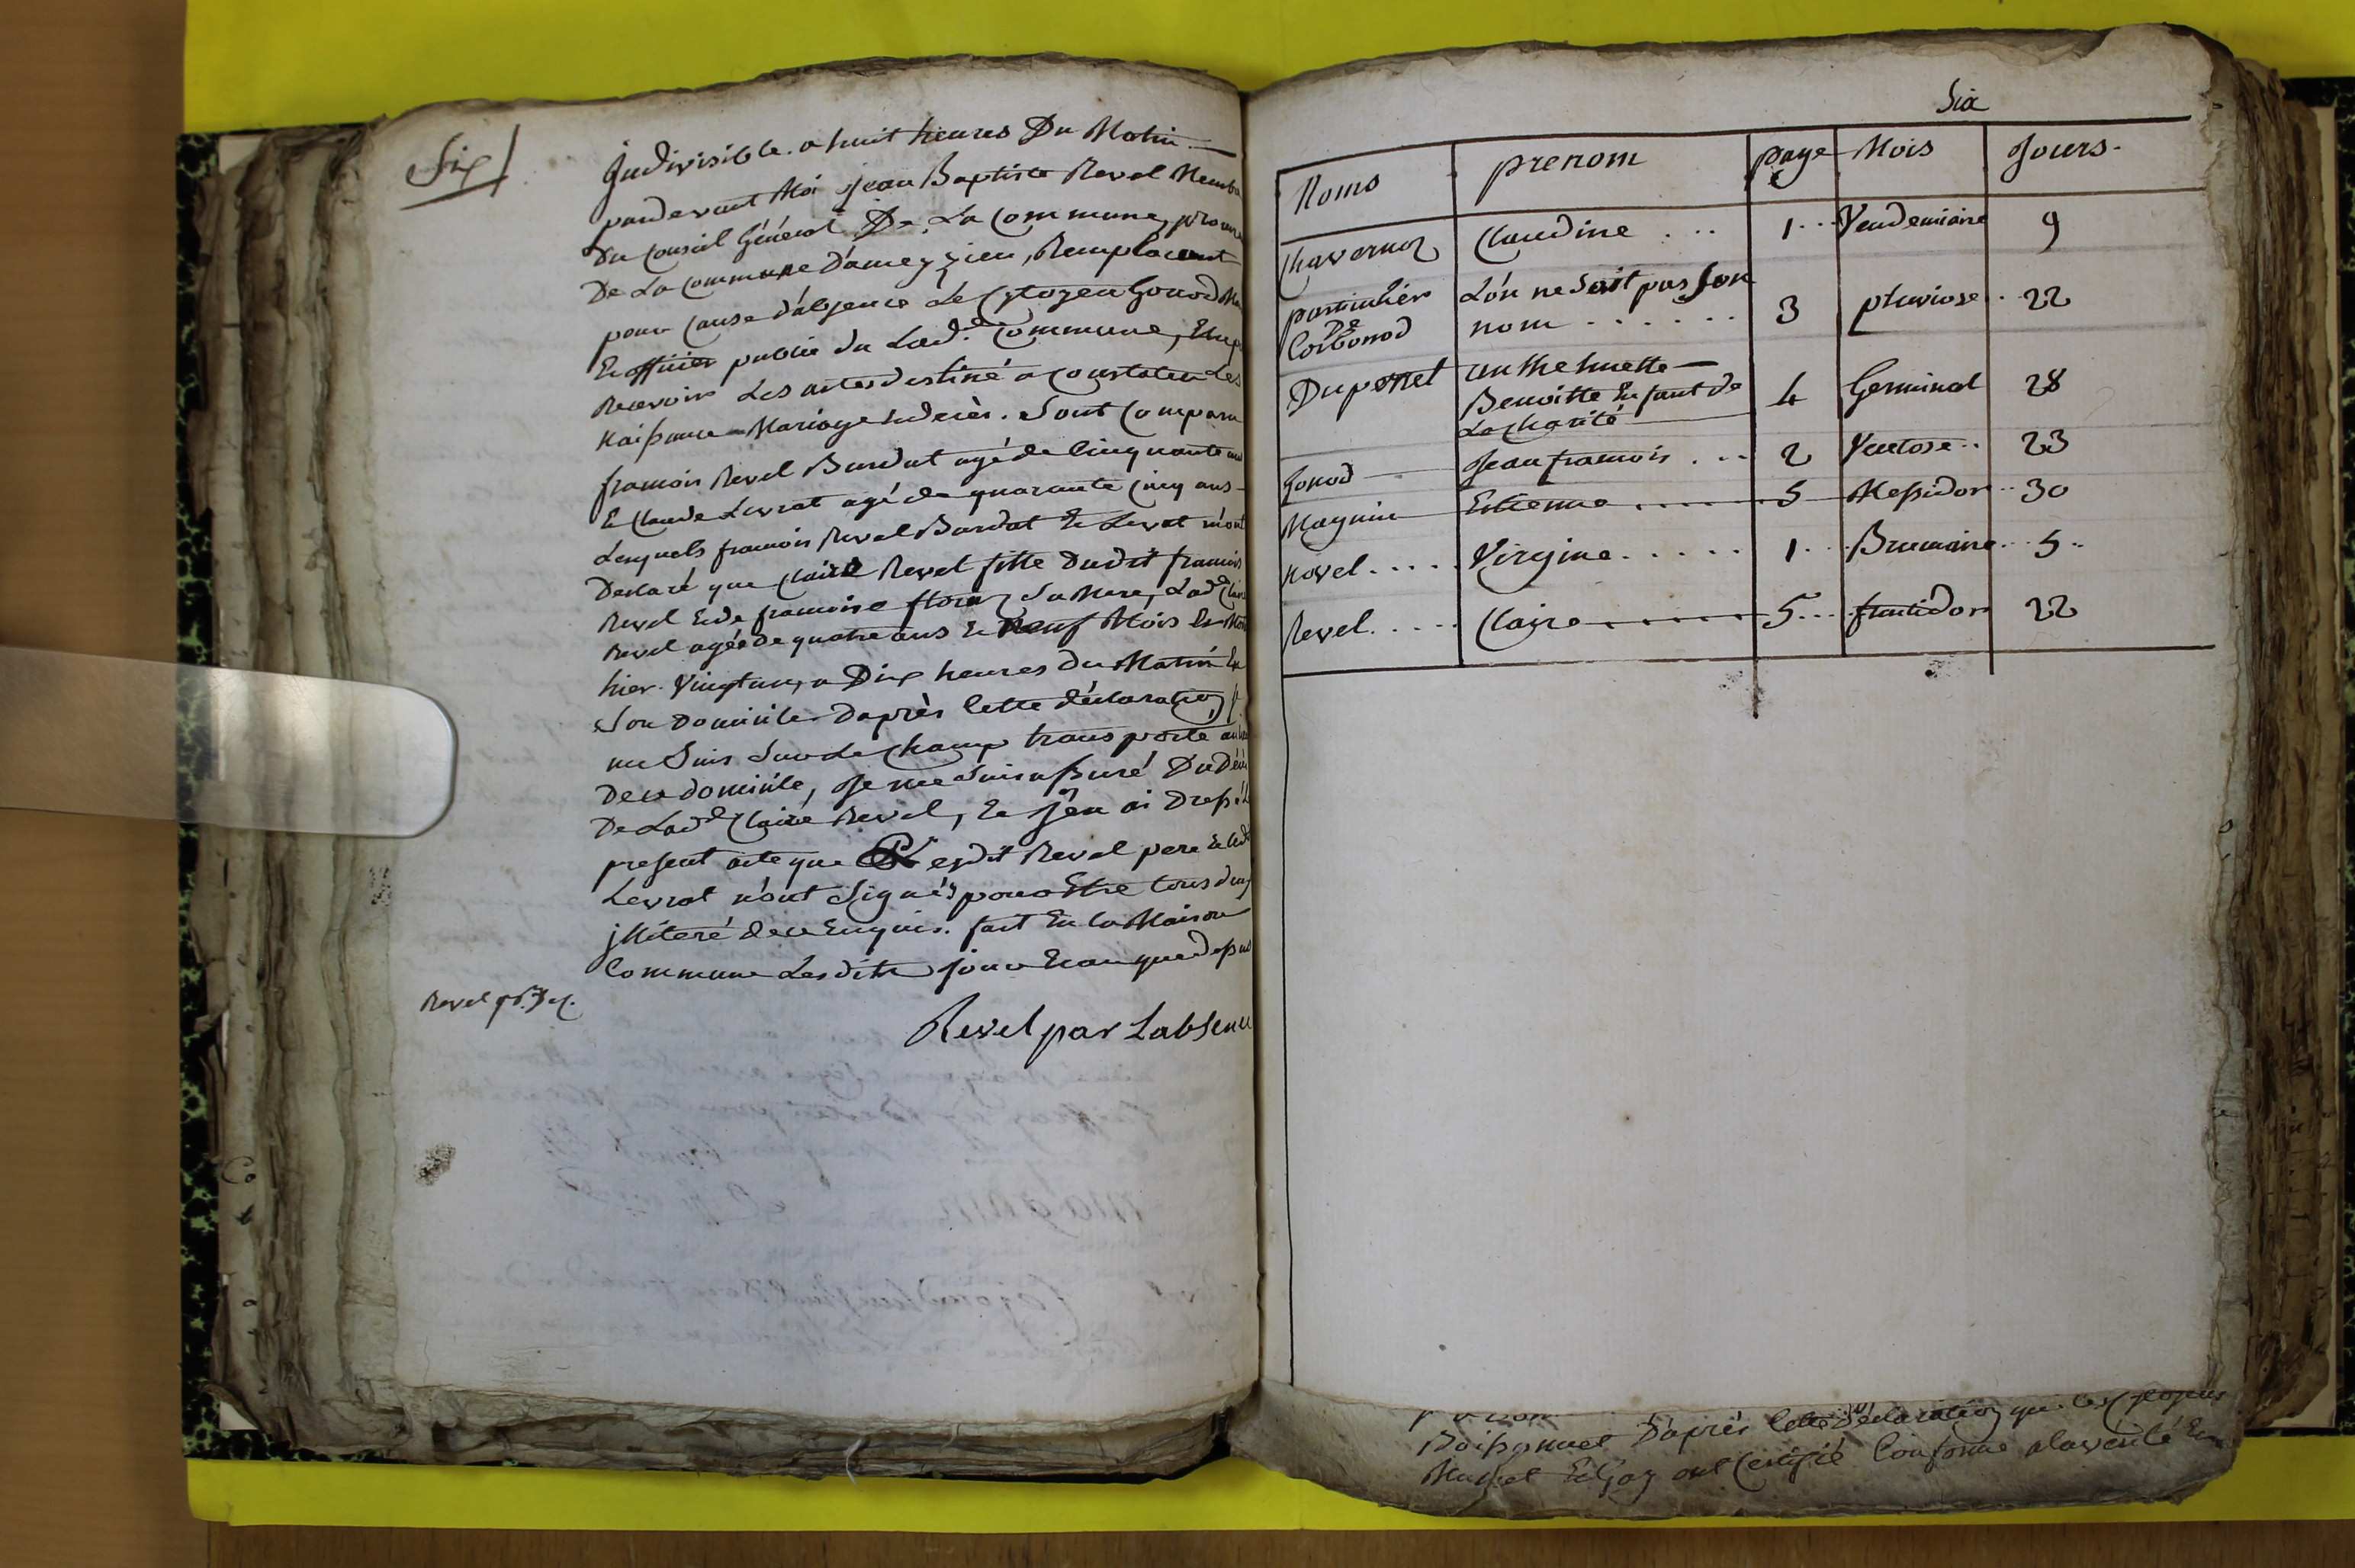 Six
Indivisible. a huit heures Du Matin
pardevant Moi Jean Baptiste Revel Memb
Du Conseil Général De La Commune,
De La Commune Dameyzieu, Remplacent
pour Cause d'absence Le Cytoyen Gonod
Et officier public du Lad.e Commune,
Recevoir Les actes destiné a Constater Les
Naissance Mariage et decès. Sont Comparu
francois Revel Burdat agé de Cinquante
Et Claude Levrat agé de quarante Cinq ans
Lesquels francois Revel Burdat Et Levrat m'ont
Declaré que Claire Revel fille Dudit francois
Revel Et de francoise floraz Sa Mere, Lad.e
Revel agée de quatre ans Et Neuf Mois Est
hier Vingt un, a Dix heures du Matin En
Son Domicile Daprès Cette déclaration
me Suis Sur Le Champ transporté au
De ce domicile, Je me Suis assuré Du décè
De Lad.e Claire Revel, Et J'en ai Dressé L
present acte que Lesdit Revel pere Et led
Levrat n'ont Signés pour Etre tous deux
jlliteré de ce Enquis. fait En la Maison
Commune Lesdits jour Et an que dessus
Revel par Labsence
Six
Noms prenom page Mois Jours.
Chavernoz Claudine .... 1... Vendemiaire 9
particulier De Corbonod L'on ne Sait pas Son nom ...... 3 pluviose .. 22
Duportel anthelmette Benoitte Enfant de La Charité 4 Germinal 28
Gonod Jean francois ... 2 Ventose .. 23
Magnin Estienne ..... 5 Messidor .. 30
Novel .... Virgine ..... 1.. Brumaire .. 5..
Revel .... Claire ..... 5... fructidor 22
D'après Cette Déclaration que les Cytoyens
ont Certifié Conforme a la vérité Et